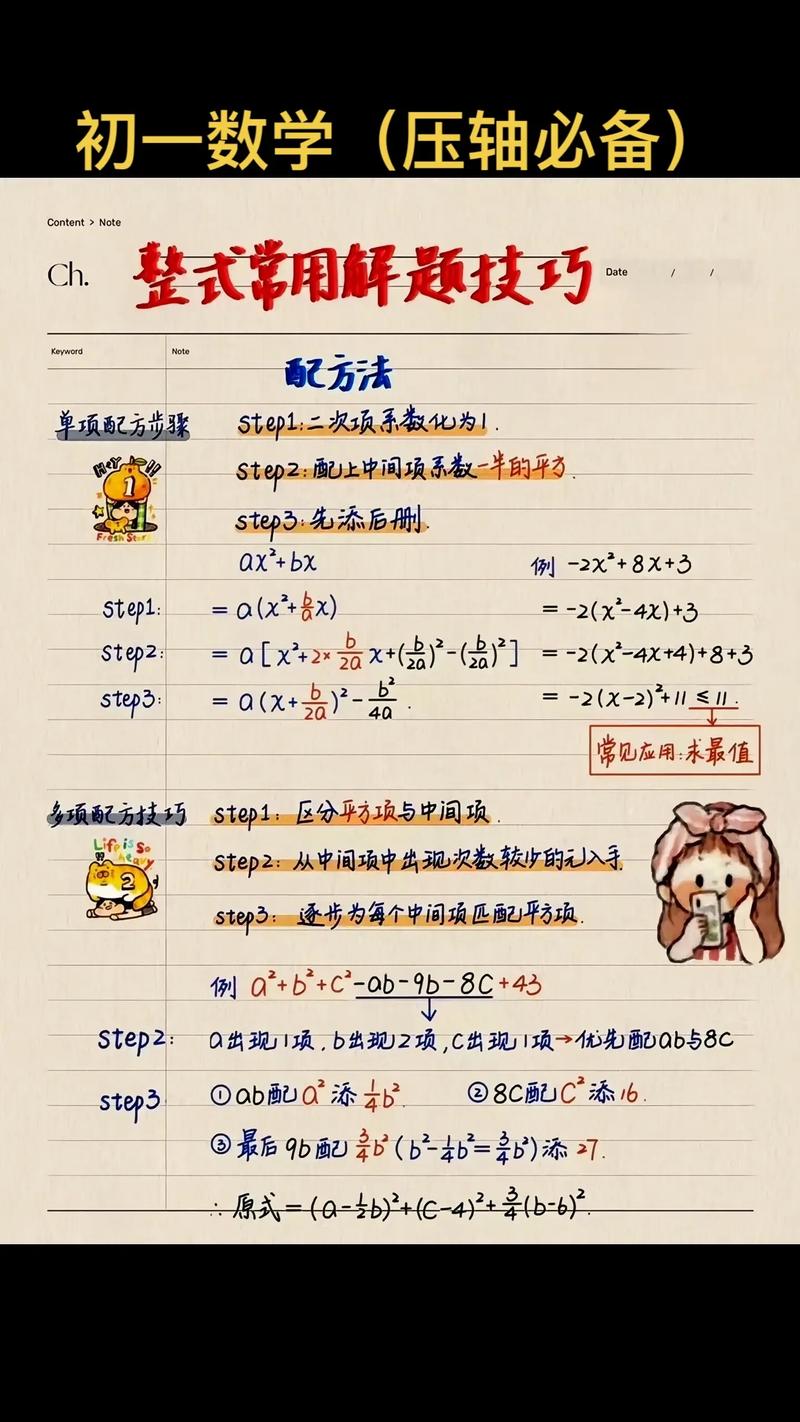 初一数学（压轴必备）
Content > Note
Ch. 整式常用解题技巧 Date / /
Keyword Note
配方法
单项配方步骤 step1:二次项系数化为1.
step2:配上中间项系数一半的平方.
step3:先添后删.
Hey !!
1
Fresh Start
ax²+bx 例 -2x²+8x+3
step1: = a(x²+b/a x) = -2(x²-4x)+3
step2: = a[x²+2×b/2a x+(b/2a)²-(b/2a)²] = -2(x²-4x+4)+8+3
step3: = a(x+b/2a)²-b²/4a. = -2(x-2)²+11 ≤ 11.
常见应用:求最值
多项配方技巧 step1: 区分平方项与中间项.
Life is So heavy
2
step2: 从中间项中出现次数较少的元入手.
step3: 逐步为每个中间项匹配平方项.
例 a²+b²+c²-ab-9b-8c+43
step2: a出现1项,b出现2项,c出现1项→优先配ab与8c
step3 ①ab配a²添1/4b². ②8c配c²添16.
③最后9b配3/4b²(b²-1/4b²=3/4b²)添27.
∴原式=(a-1/2b)²+(c-4)²+3/4(b-6)².